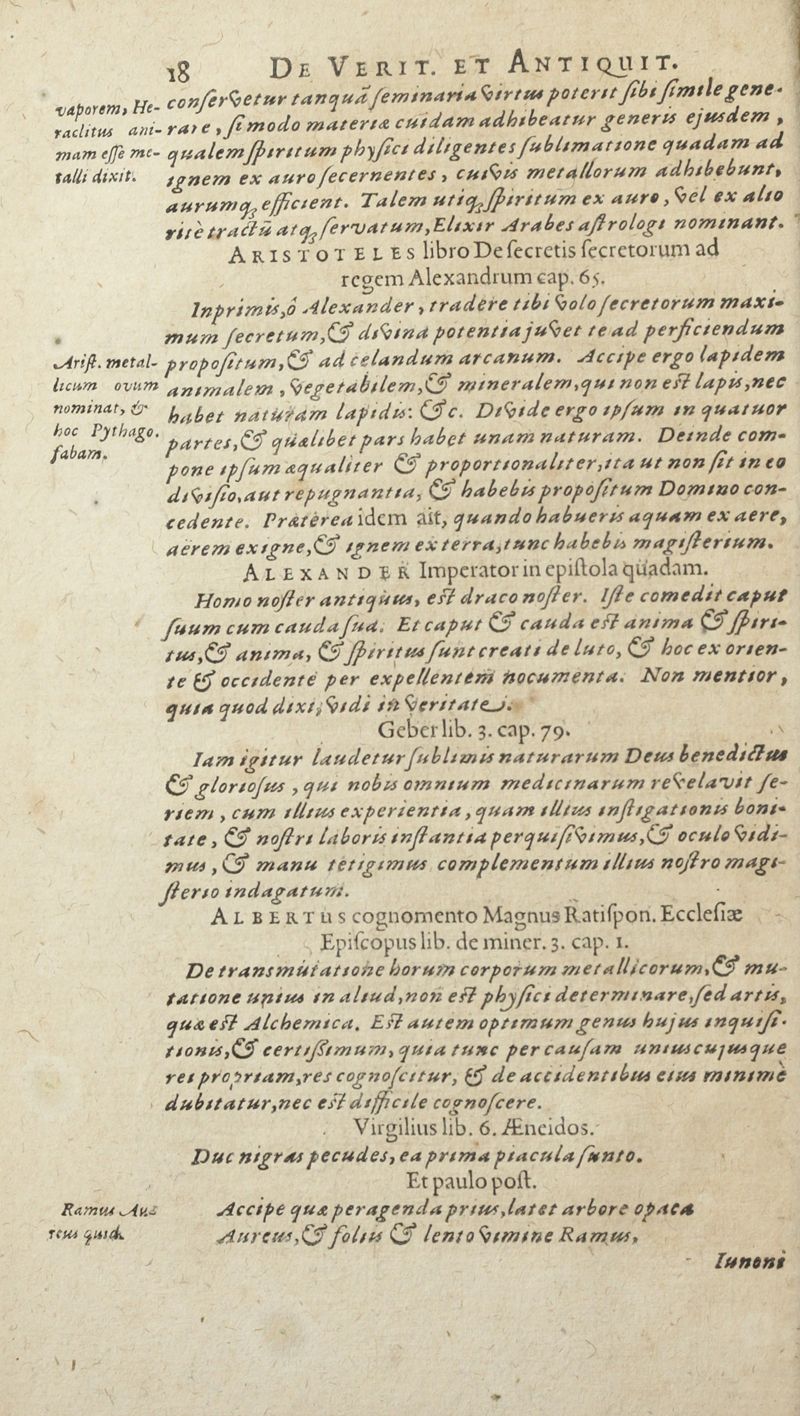 18 DE VERIT. ET ANTIQUIT.
vaporem, He-
raclitus ani-
mam esse me-
talli dixit.
conservetur tanquã seminaria virtus poterit sibi simile gene-
rare, si modo materiæ cuidam adhibeatur generis ejusdem,
qualem spiritum physici diligentes sublimatione quadam ad
ignem ex auro secernentes, cuivis metallorum adhibebunt,
aurumq; efficient. Talem utiq; spiritum ex auro, vel ex alio
ritè tractũ atq; servatum, Elixir Arabes astrologi nominant.
ARISTOTELES libro De secretis secretorum ad
regem Alexandrum cap. 65.
Inprimis, ô Alexander, tradere tibi volo secretorum maxi-
mum secretum, & divina potentia juvet te ad perficiendum
Arist. metal-
licum ovum
nominat, &
hoc Pythago.
fabam.
propositum, & ad celandum arcanum. Accipe ergo lapidem
animalem, vegetabilem, & mineralem, qui non est lapis, nec
habet naturam lapidis: &c. Divide ergo ipsum in quatuor
partes, & quælibet pars habet unam naturam. Deinde com-
pone ipsum æqualiter & proportionaliter, ita ut non sit in eo
divisio, aut repugnantia, & habebis propositum Domino con-
cedente. Præterea idem ait, quando habueris aquam ex aere,
aerem ex igne, & ignem ex terra, tunc habebis magisterium.
ALEXANDER Imperator in epistola quadam.
Homo noster antiquus, est draco noster. Iste comedit caput
suum cum cauda sua. Et caput & cauda est anima & spiri-
tus, & anima, & spiritus sunt creati de luto, & hoc ex orien-
te & occidente per expellentem nocumenta. Non mentior,
quia quod dixi, vidi in veritate.
Geber lib. 3. cap. 79.
Iam igitur laudetur sublimis naturarum Deus benedictus
& gloriosus, qui nobis omnium medicinarum revelavit se-
riem, cum illius experientia, quam illius instigationis boni-
tate, & nostri laboris instantia perquisivimus, & oculo vidi-
mus, & manu tetigimus complementum illius nostro magi-
sterio indagatum.
ALBERTUS cognomento Magnus Ratispon. Ecclesiæ
Episcopus lib. de miner. 3. cap. 1.
De transmutatione horum corporum metallicorum, & mu-
tatione unius in aliud, non est physici determinare, sed artis,
quæ est Alchemica. Est autem optimum genus hujus inquisi-
tionis, & certissimum, quia tunc per causam uniuscujusque
rei propriam, res cognoscitur, & de accidentibus eius minimè
dubitatur, nec est difficile cognoscere.
Virgilius lib. 6. Æneidos.
Duc nigras pecudes, ea prima piacula sunto.
Et paulo post.
Ramus Au-
reus quid.
Accipe quæ peragenda prius, latet arbore opaca
Aureus, & foliis & lento vimine Ramus,
Iunoni